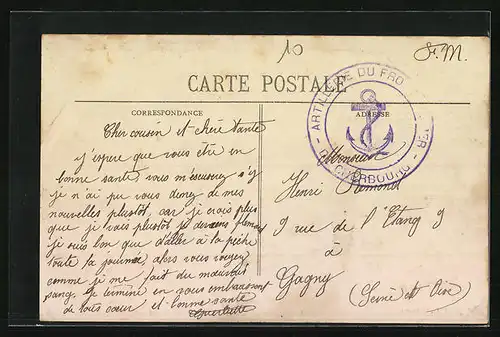 10
F. M.
CARTE POSTALE
ARTILLERIE DU FRO
CHERBOURG
CORRESPONDANCE
ADRESSE
Cher cousin et chère tante
j'espere que vous ete en
bonne sante, vous m'escuserez s'y
je n'ai pu vous donez de mes
nouvelles plustôt, car je crois plus
que je vais plustôt je deviens
je suis bon que d'aller a la pêche
toute la journee, alors vous voyez
comme je me fait du mauvais
sang. Je termine en vous embrassant
de tous coeur et bonne sante
Monsieur
Henri Remond
9 rue de l'Etang 9
à
Gagny
(Seine et Oise)